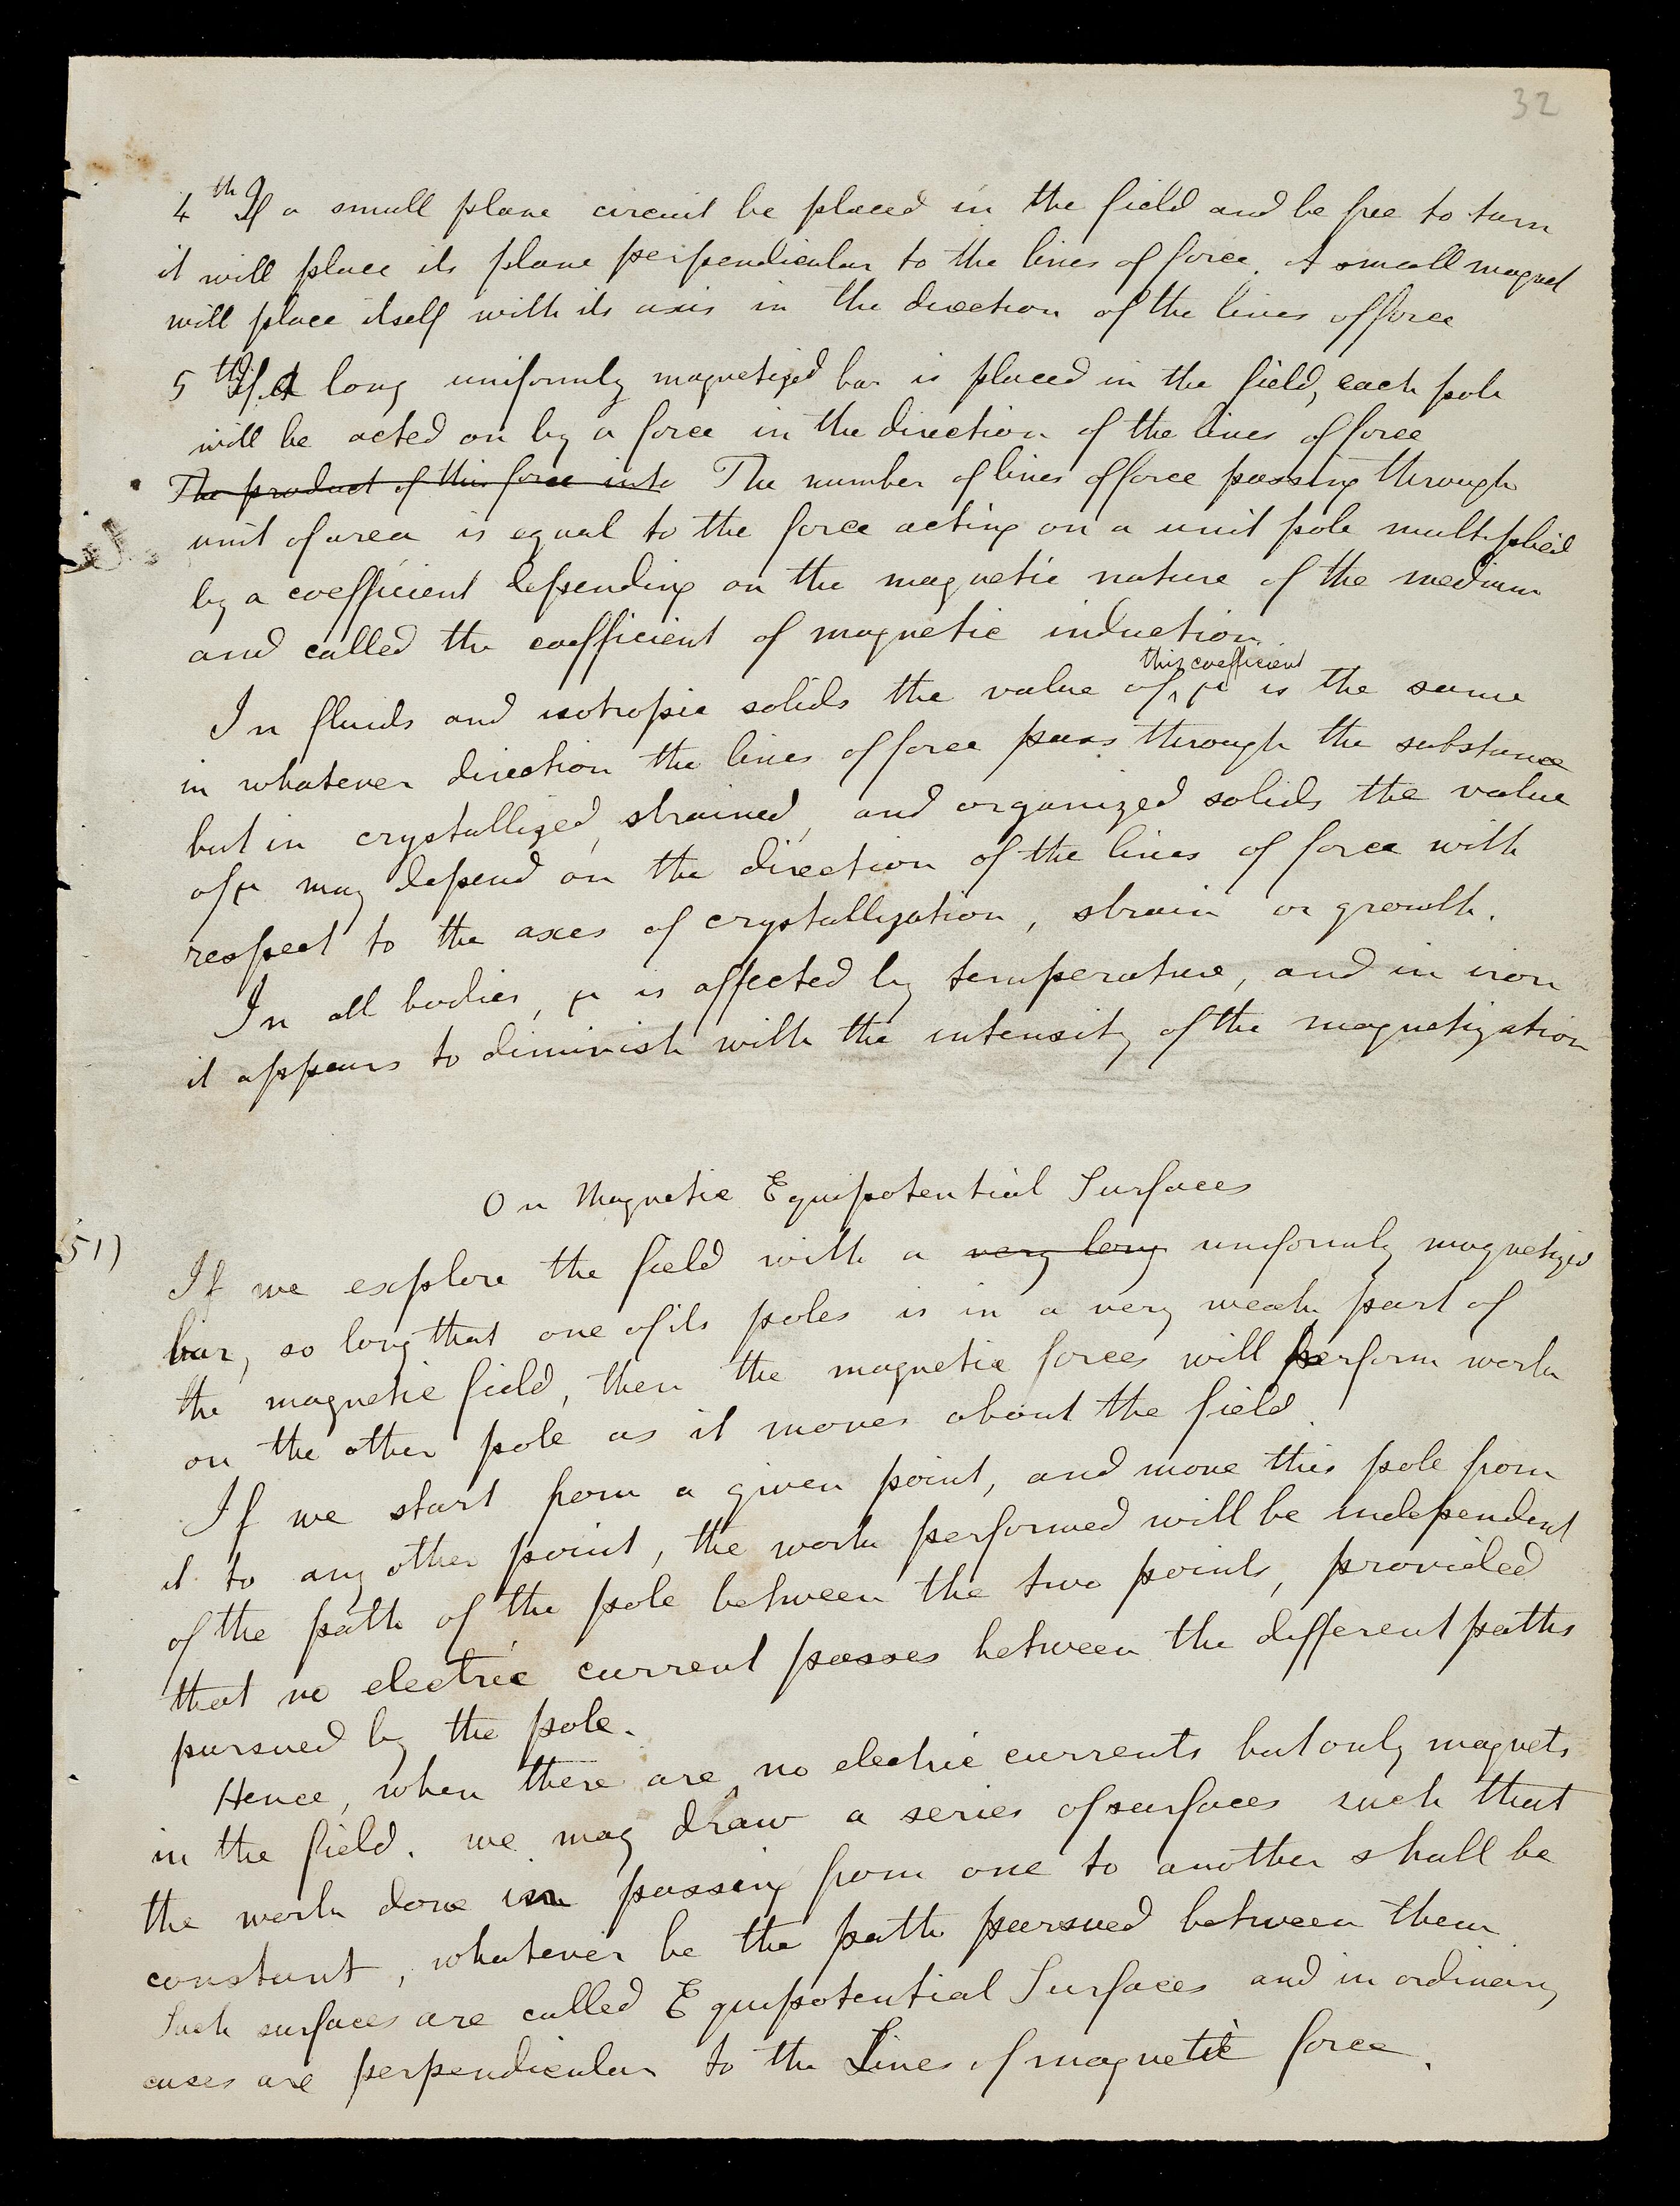 32
4th If a small plane circuit be placed in the field and be free to turn
it will place its plane perpendicular to the lines of force. A small magnet
will place itself with its axis in the direction of the lines of force
5th If a long uniformly magnetized bar is placed in the field, each pole
will be acted on by a force in the direction of the lines of force
The product of this force into The number of lines of force passing through
unit of area is equal to the force acting on a unit pole multiplied
by a coefficient depending on the magnetic nature of the medium
and called the coefficient of magnetic induction.
this coefficient
In fluids and isotropic solids the value of μ is the same
in whatever direction the lines of force pass through the substance
but in crystallized, strained, and organized solids the value
of μ may depend on the direction of the lines of force with
respect to the axes of crystallization, strain or growth.
In all bodies, μ is affected by temperature, and in iron
it appears to diminish with the intensity of the magnetization
On Magnetic Equipotential Surfaces
51)
If we explore the field with a very long uniformly magnetized
bar, so long that one of its poles is in a very weak part of
the magnetic field, then the magnetic forces will perform work
on the other pole as it moves about the field.
If we start from a given point, and move this pole from
it to any other point, the work performed will be independent
of the path of the pole between the two points, provided
that no electric current passes between the different paths
pursued by the pole.
Hence, when there are no electric currents but only magnets
in the field, we may draw a series of surfaces such that
the work done in passing from one to another shall be
constant, whatever be the path pursued between them
Such surfaces are called Equipotential Surfaces and in ordinary
cases are perpendicular to the Lines of magnetic force.